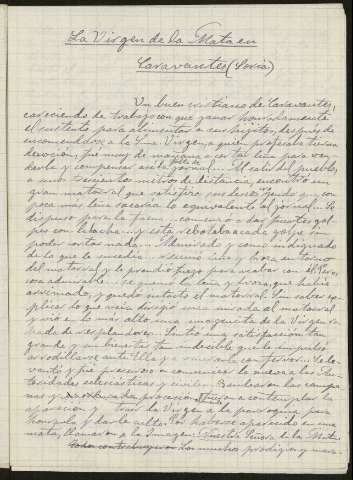 La Virgen de la Mata en
Caravantes (Soria)
Un buen cristiano de Caravantes,
careciendo de trabajo con que ganar honradamente
el sustento para alimentar a sus hijitos, después de
encomendarse a la Sma. Virgen, a quien profesaba tierna
devoción, fué muy de mañana a cortar leña para ven-
derla y compensar así la falta de jornal... Al salir del pueblo,
a unos trescientos metros de distancia, encontró un
gran matorral que satisfizo sus deseos, ya que con
poca más leña sacaría lo equivalente al jornal. Se
dispuso para la faena... comenzó a dar fuertes gol-
pes con el hacha... y ésta rebotaba cada golpe sin
poder cortar nada... Admirado y como indignado
de lo que le sucedía... reunió leña y broza en torno
del matorral y le prendió fuego para acabar con él. Pero,
cosa admirable... se quemó la leña y broza, que había
arrimado, y quedó intacto el matorral. Sin saber ex-
plicar lo que veía dirigió una mirada al matorral
y vió en lo más alto una imagencita de la Virgen ro-
deada de resplandores. Sintió una satisfacción tan
grande y un bienestar tan indecible que le impulsó
arrodillarse ante Ella y a venerarla con fervor... Se le-
vantó y fué presuroso a comunicar la nueva a las Au-
toridades eclesiásticas y civiles. Bandearon las campa-
nas y en procesión fueron a contemplar la
aparición y traer la Virgen a la parroquia para
honrarla y darle culto. Por haberse aparecido en una
mata, llamaron a la Imagen: Nuestra Señora de la Mata.
Los muchos prodigios y mara-